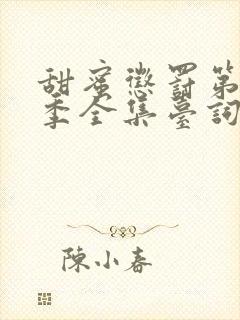 甜蜜懲罰第
季全集臺詞
陳小春